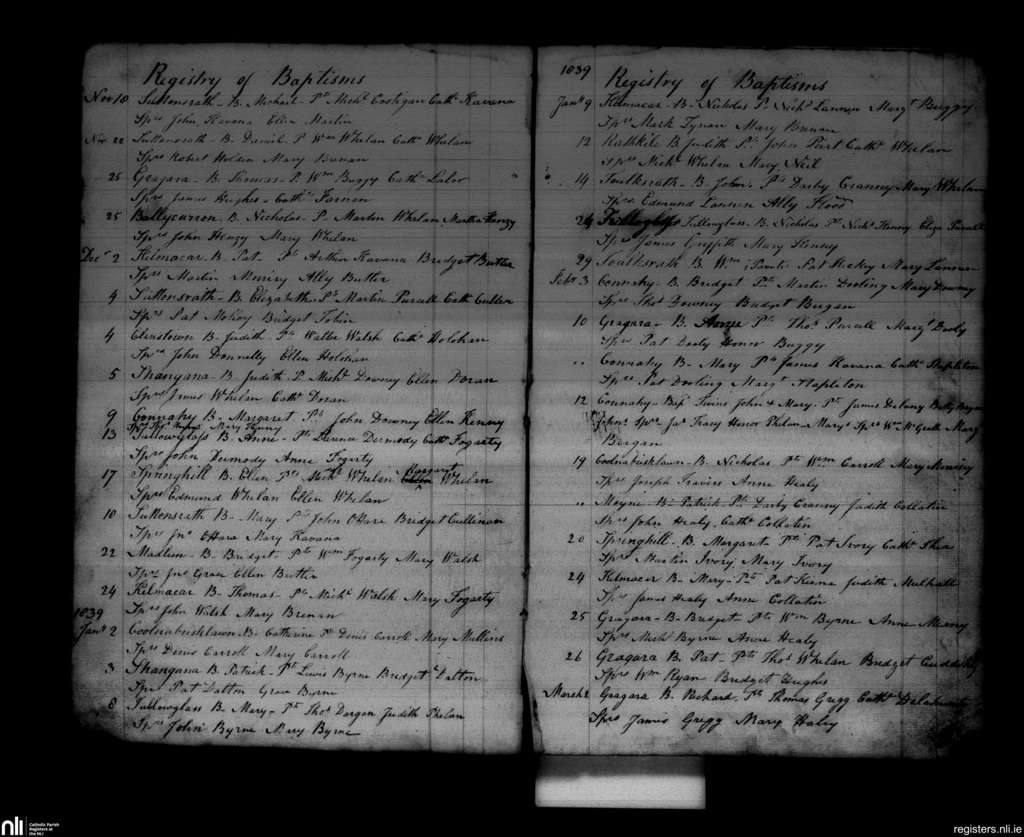 Registry of Baptisms
Nov 10 Suttonsrath - B. Michael - Pts Michl Costigan Cathe Kavana
Sprs John Kavana Ellen Martin
Nov 22 Suttonsrath - B. Daniel - P Wm Whelan Cathe Whelan
Sprs Robert Holden Mary Brenan
25 Gragara - B. Thomas - P. Wm Buggy Cathe Lalor
Sprs James Hughes - Cathe
25 Ballycarron. B. Nicholas - P. Martin Whelan Martha Henzy
Sprs John Henzy Mary Whelan
Decr 2 Kilmacar - B. Pat. Pts Arthur Kavana Bridget Butler
Sprs Martin Ally Butler
4 Suttonsrath - B. Elizabeth - Pts Martin Purcell Cathe Cullen
Sprs Pat Molony Bridget Tobin
4 Clinstown B. Judith Pts Walter Walsh Cathe Holohan
Sprs John Donnelly Ellen Holohan
5 Shangana - B. Judith. P. Michl Downey Ellen Doran
Sprs James Whelan Cathe Doran
9 Connahy B - Margaret - Pts John Downey Ellen Kenny
Sprs Mary Kenny
13 Tullowglass B. Anne - Pts Dermody Cathe Fogarty
Sprs John Dermody Anne Fogarty
17 Springhill - B. Ellen Pts Michl Whelan Margaret Whelan
Sprs Edmund Whelan Ellen Whelan
18 Suttonsrath B - Mary - Pts John OHara Bridget Cullinan
Sprs Jno OHara Mary Kavana
22 - B. Bridget - Pts Wm Fogarty Mary Walsh
Sprs Jno Grace Ellen Butler
24 Kilmacar B - Thomas - Pts Michl Walsh Mary Fogarty
1839 Sprs John Walsh Mary Brenan
Jany 2 Coolnabrislawn. B. Catherine Pts Denis Carroll Mary Mullins
Sprs Denis Carroll Mary Carroll
3 Shangana - B Patrick - Pts Lewis Byrne Bridget Dalton
Sprs Pat Dalton Grace Byrne
6 Tullowglass B. Mary - Pts Thos Dargan Judith Phelan
Sprs John Byrne Mary Byrne
1839 Registry of Baptisms
Jany 9 Kilmacar - B - Nicholas P. Nichs Lannen Margt Buggy
Sprs Mark Tynan Mary Brenan
12 Rathkile B Judith Pts John Cathe Whelan
Sprs Michl Whelan Mary Neil
14 Foulksrath - B - John. Pts Darby Cranny Mary Whelan
Sprs Edmund Lannen Ally Flood
24 Tullowglass. B. Nicholas Pts Nichs Henry Eliza
Sprs James Griffith Mary Henry
29 Foulksrath B. Wm Pat Hickey Mary Lannen
Feby 3 Connahy - B. Bridget Pts Martin Dooling Mary Downey
Sprs Thos Downey Bridget Bergan
10 Gragara - B. Anne Pts Thos Purcell Margt Dooly
Sprs Pat Dooly Honor Buggy
.. Connahy B - Mary Pts James Kavana Cathe Stapleton
Sprs Pat Dooling Margt Stapleton
12 Connahy - Bap. Twins John & Mary. Pts James Delany Betty Bryan
John's Sprs Jas Tracy Honor Phelan - Mary's Sprs Wm McGrath Mary
Bergan
19 Coolnabrislawn - B. Nicholas Pts Wm Carroll Mary
Sprs Joseph Anne Healy
.. Moyne - B - Patrick - Pts Darby Cranny Judith Collatin
Sprs John Healy. Cathe Collatin
20 Springhill - B. Margaret Pts Pat Ivory Cathe Shea
Sprs Martin Ivory Mary Ivory
24 Kilmacar B - Mary - Pts Pat Keena Judith Mulhall
Sprs James Healy Anne Collatin
25 Gragara - B - Bridget Pts Wm Byrne Anne
Sprs Michl Byrne Anne Healy
26 Gragara B. Pat - Pts Thos Whelan Bridget Cuddihy
Sprs Wm Ryan Bridget Hughes
March 2 Gragara B. Richard. Pts Thomas Gregg Cathe Delahunty
Sprs James Gregg Mary Haley
nli
Catholic Parish
Registers at
the NLI
registers.nli.ie